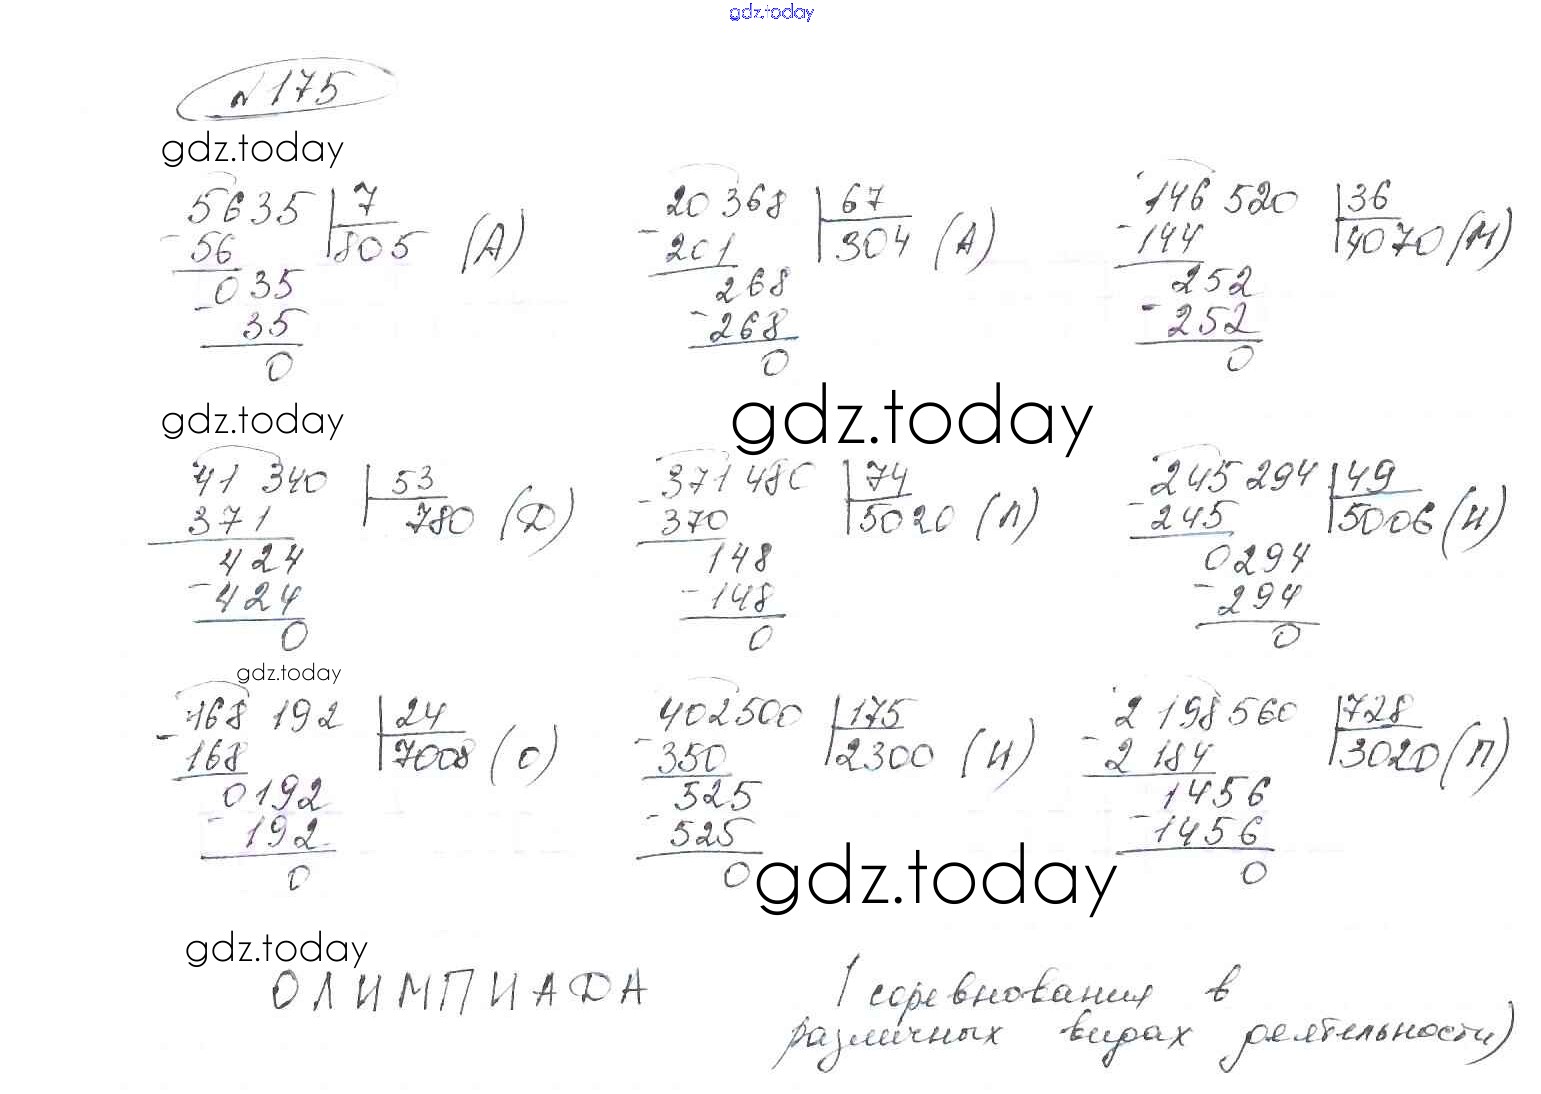 gdz.today
№175
gdz.today
5635 | 7
- 56 | 805 (А)
- 035
35
0
20 368 | 67
- 201 | 304 (А)
268
- 268
0
146 520 | 36
- 144 | 4070 (М)
252
- 252
0
gdz.today
gdz.today
41 340 | 53
371 | 780 (Д)
424
- 424
0
- 371 480 | 74
370 | 5020 (Л)
148
- 148
0
- 245 294 | 49
245 | 5006 (И)
0294
- 294
0
gdz.today
- 168 192 | 24
168 | 7008 (О)
0192
- 192
0
402500 | 175
- 350 | 2300 (И)
525
- 525
0
2 198 560 | 728
- 2 184 | 3020 (П)
1456
- 1456
0
gdz.today
gdz.today
ОЛИМПИАДА
(соревнования в
различных видах деятельности)